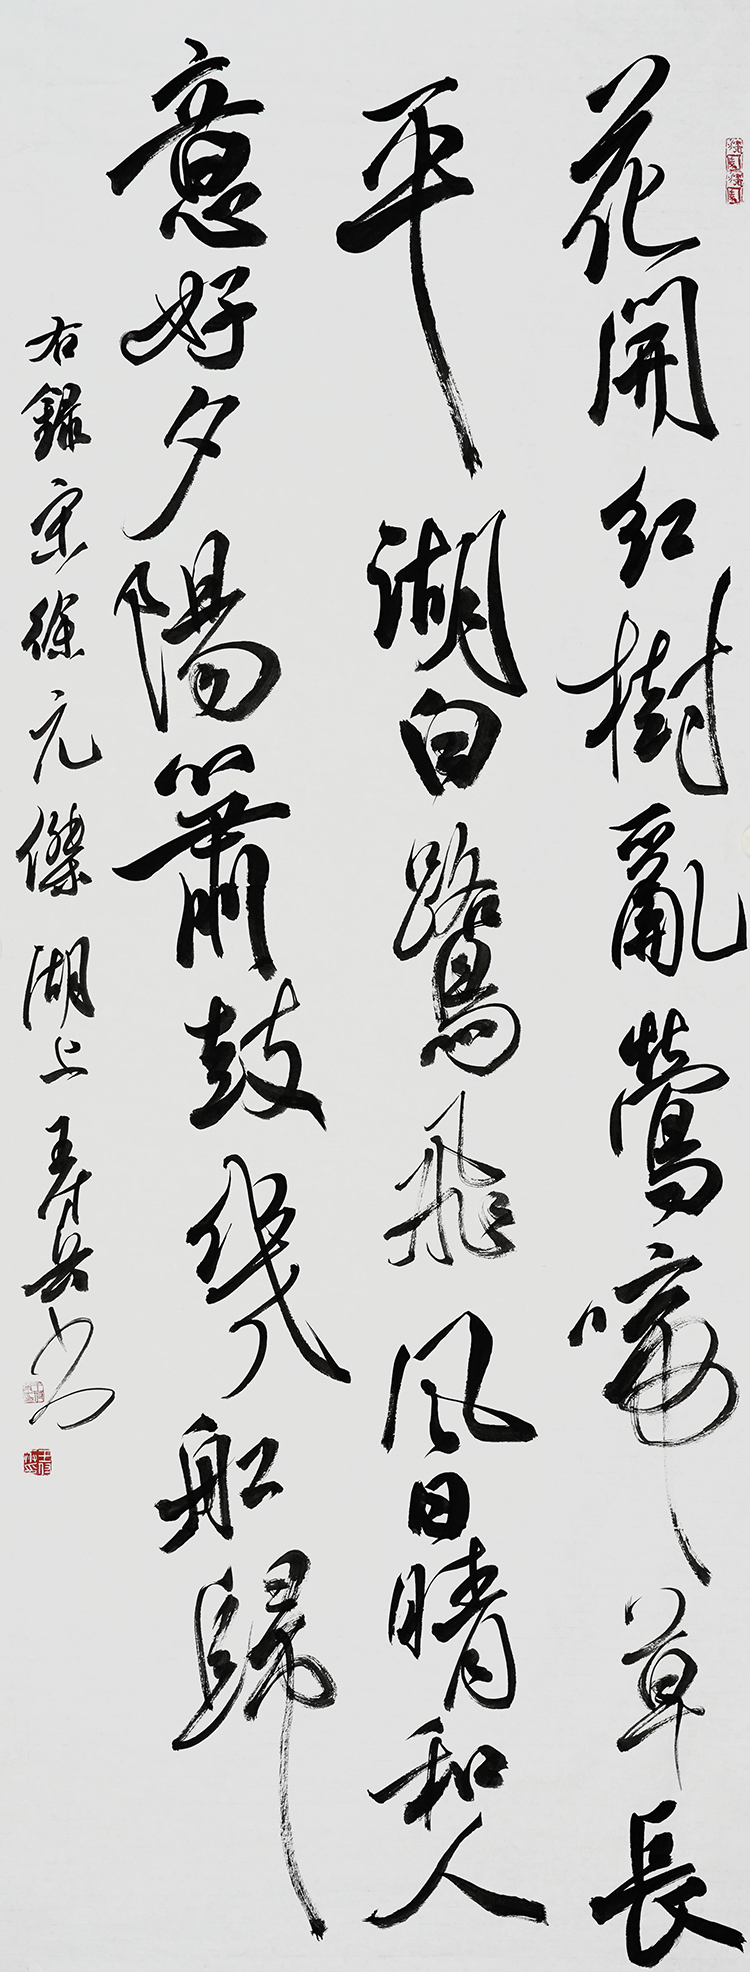 花開紅樹亂鶯啼草長
平湖白鷺飛風日晴和人
意好夕陽簫鼓幾船歸
右錄宋徐元傑湖上王付兵书